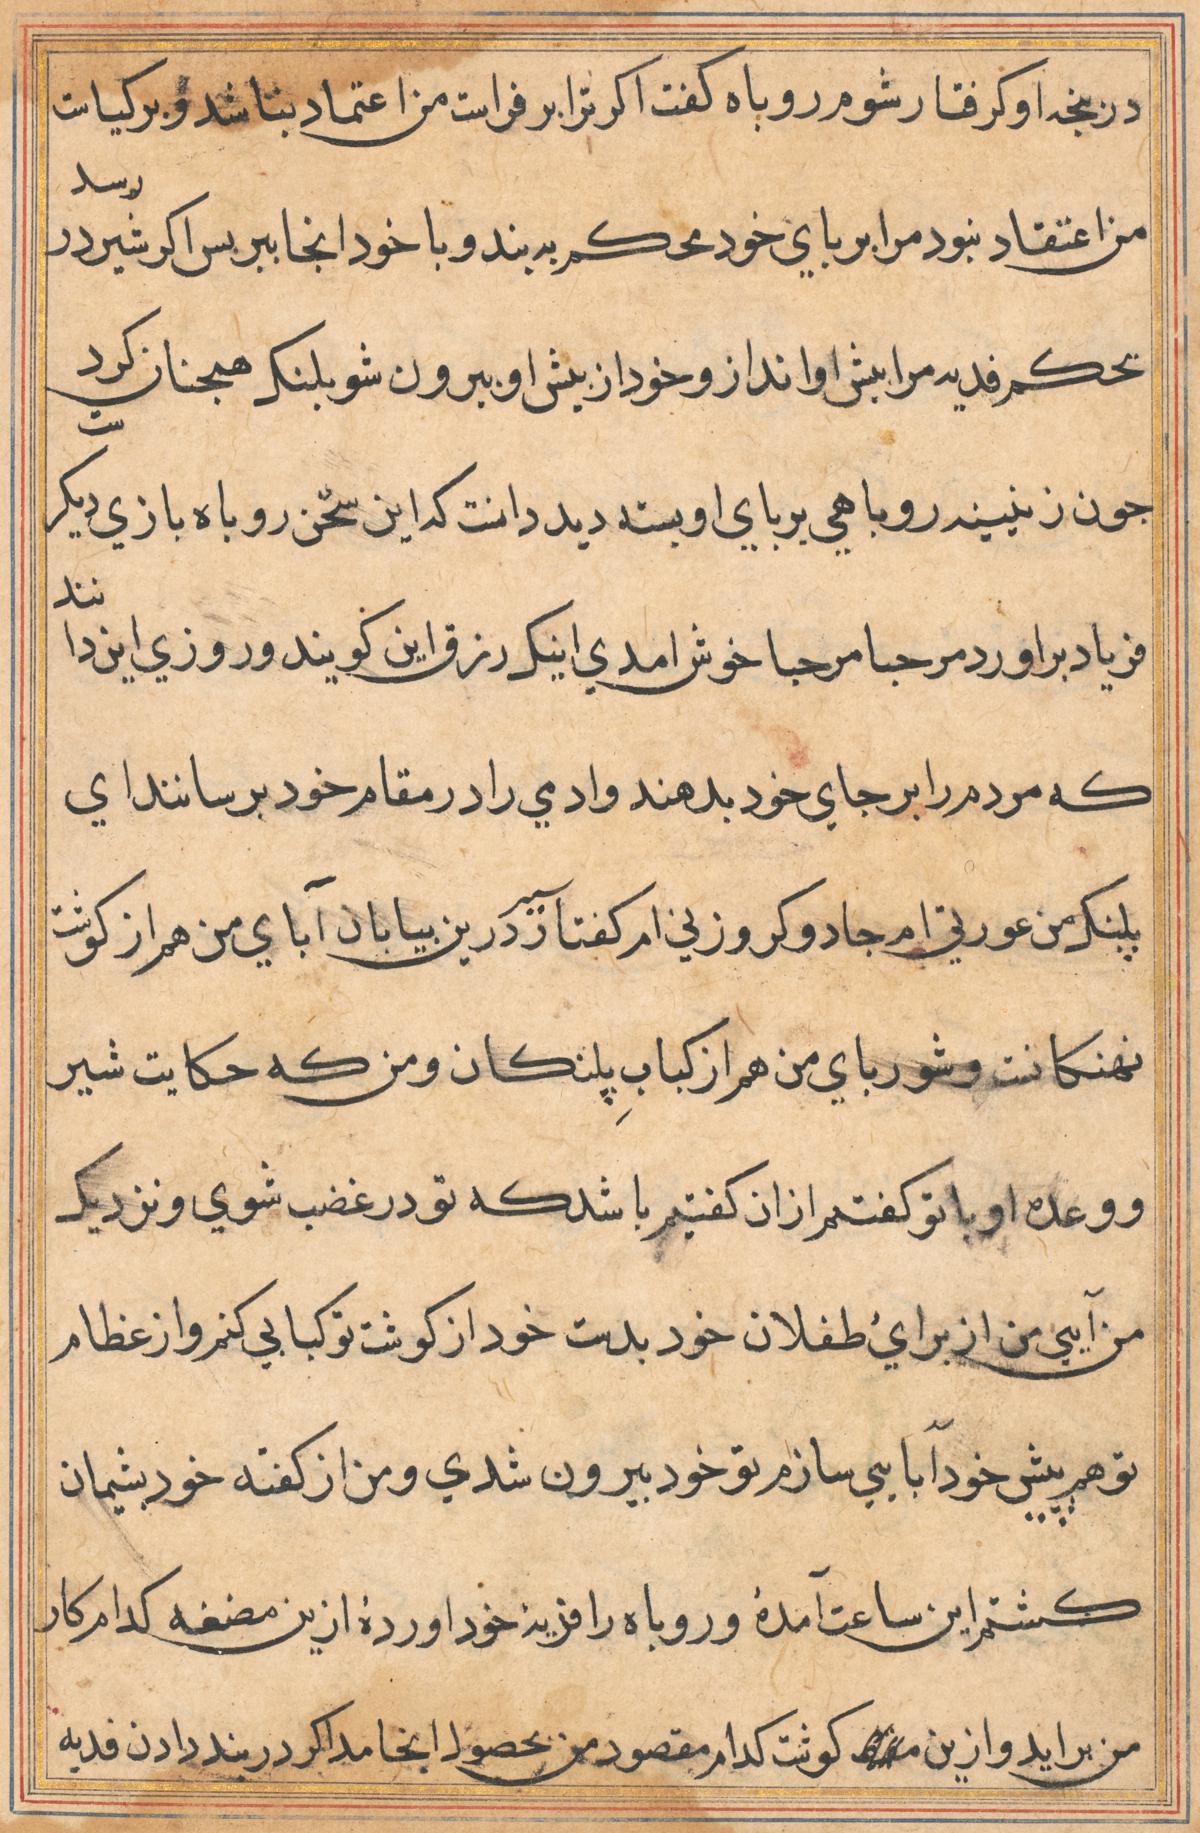 در پنجه او کرفتار شوم روباه کفت اکر ترا بر فراست من اعتماد بناشد و بر کیاست
من اعتقاد نبود مرا بر باي خود محکم به بند و با خود انجا ببر بس اکر شیر در رسد
بحکم فدیه مرا بیش او انداز و خود از بیش او بیرون شو بلنک همجنان کرد
جون زن بیند روباهي بر باي او بسته دید دانست که این سخن روباه بازي دیکرست
فریاد براورد مرحبا مرحبا خوش امدي اینک رزق این کویند و روزي این دانند
که مردم را بر جاي خود بدهند وادمي را در مقام خود برسانند اي
پلنک من عورتي ام جادو کر و زني ام کفتار سیر درین بیابان آباي من هم از کوشت
نهنکانست و شورباي من هم از کبابِ پلنکان و من که حکایت شیر
و وعده او با تو کفتم از ان کفتم باشد که تو در غضب شوي و نزدیک
من آیي من از براي طفلان خود بدست خود از کوشت تو کبابي کنم و از عظام
تو هم پیش خود آبایي سازم تو خود بیرون شدي و من از کفته خود بشیمان
کشتم این ساعت آمدهٔ و روباه را فزیه خود اوردهٔ ازین مضغه کدام کار
من براید و ازین کوشت کدام مقصود من بحصول انجامد اکر در بند دادن فدیه